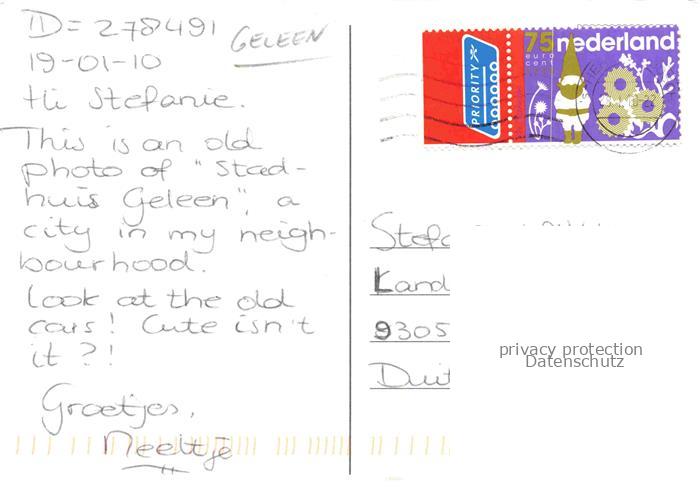 ID = 278491 GELEEN
19-01-10
Hi Stefanie.
This is an old
photo of "Stad-
huis Geleen", a
city in my neigh-
bourhood.
Look at the old
cars! Cute isn't
it?!
Groetjes,
Neeltje
PRIORITY
75 nederland
euro
cent
Stefa
Land
9305
Duit
privacy protection
Datenschutz